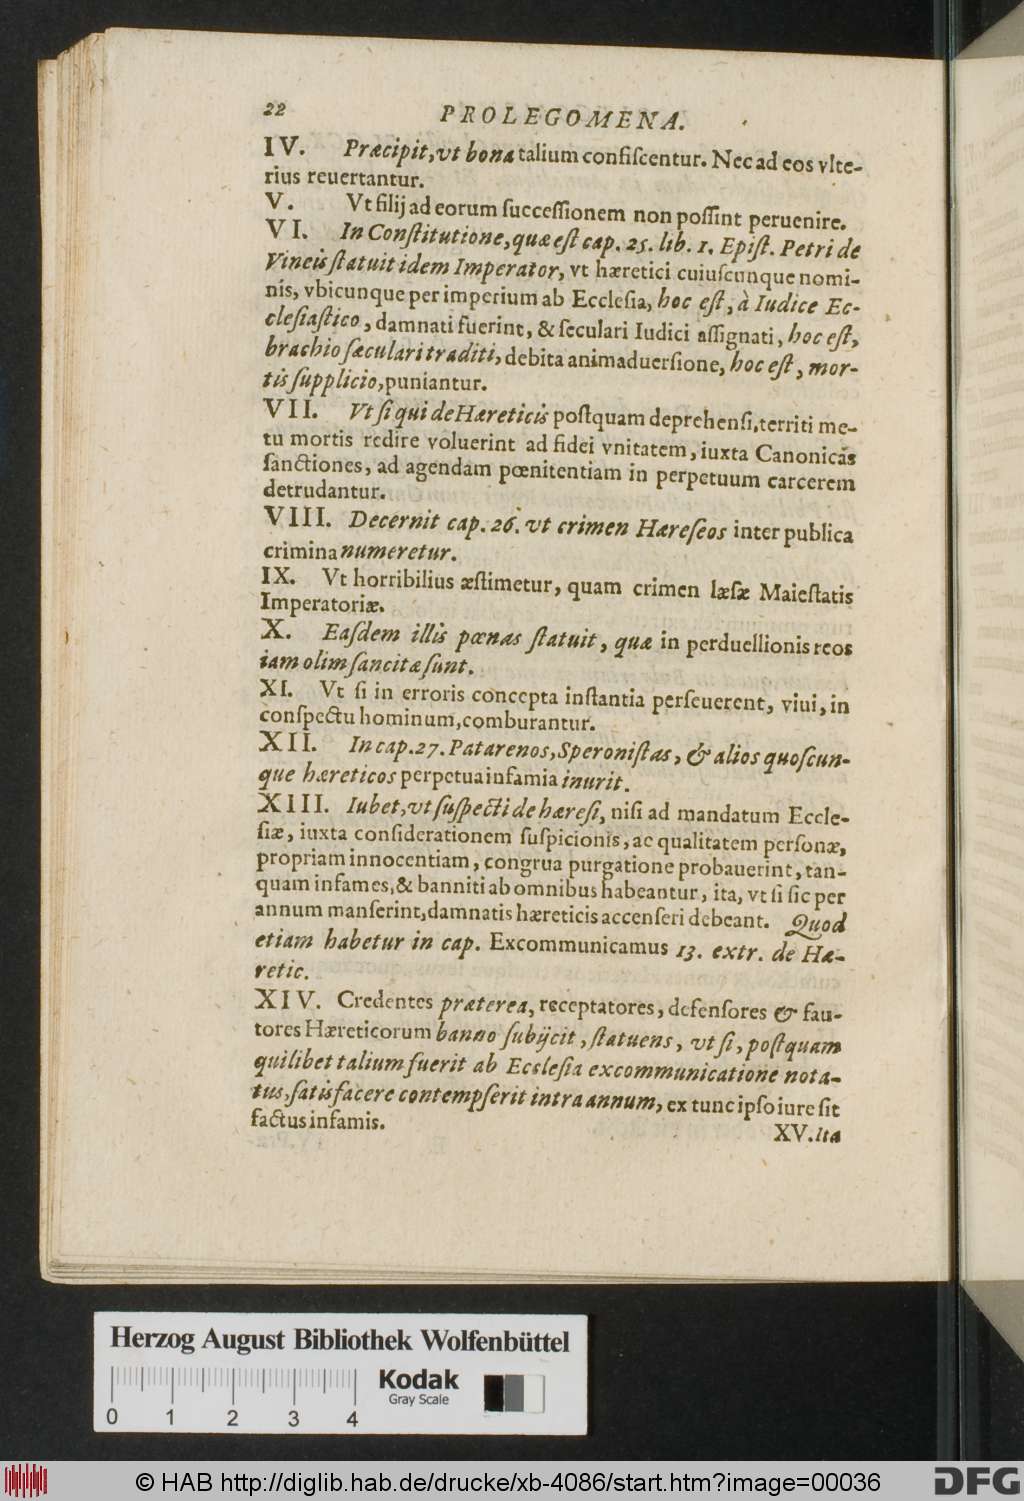 22 PROLEGOMENA.
IV. Præcipit, vt bona talium confiſcentur. Nec ad eos vlte-
rius reuertantur.
V. Vt filij ad eorum ſucceſſionem non poſſint peruenire.
VI. In Conſtitutione, quæ eſt cap. 25. lib. 1. Epiſt. Petri de
Vineis ſtatuit idem Imperator, vt hæretici cuiuſcunque nomi-
nis, vbicunque per imperium ab Eccleſia, hoc eſt, à Iudice Ec-
cleſiaſtico, damnati fuerint, & ſeculari Iudici aſſignati, hoc eſt,
brachio ſæculari traditi, debita animaduerſione, hoc eſt, mor-
tis ſupplicio, puniantur.
VII. Vt ſi qui de Hæreticis poſtquam deprehenſi, territi me-
tu mortis redire voluerint ad fidei vnitatem, iuxta Canonicas
ſanctiones, ad agendam pœnitentiam in perpetuum carcerem
detrudantur.
VIII. Decernit cap. 26. vt crimen Hæreſeos inter publica
crimina numeretur.
IX. Vt horribilius æſtimetur, quam crimen læſæ Maieſtatis
Imperatoriæ.
X. Eaſdem illis pœnas ſtatuit, quæ in perduellionis reos
iam olim ſancitæ ſunt.
XI. Vt ſi in erroris concepta inſtantia perſeuerent, viui, in
conſpectu hominum, comburantur.
XII. In cap. 27. Patarenos, Speroniſtas, & alios quoſcun-
que hæreticos perpetua infamia inurit.
XIII. Iubet, vt ſuſpecti de hæreſi, niſi ad mandatum Eccle-
ſiæ, iuxta conſiderationem ſuſpicionis, ac qualitatem perſonæ,
propriam innocentiam, congrua purgatione probauerint, tan-
quam infames, & banniti ab omnibus habeantur, ita, vt ſi ſic per
annum manſerint, damnatis hæreticis accenſeri debeant. Quod
etiam habetur in cap. Excommunicamus 13. extr. de Hæ-
retic.
XIV. Credentes præterea, receptatores, defenſores & fau-
tores Hæreticorum banno ſubijcit, ſtatuens, vt ſi, poſtquam
quilibet talium fuerit ab Eccleſia excommunicatione nota-
tus, ſatisfacere contempſerit intra annum, ex tunc ipſo iure ſit
factus infamis.
XV. Ita
Herzog August Bibliothek Wolfenbüttel
Kodak
Gray Scale
0 1 2 3 4
© HAB http://diglib.hab.de/drucke/xb-4086/start.htm?image=00036
DFG